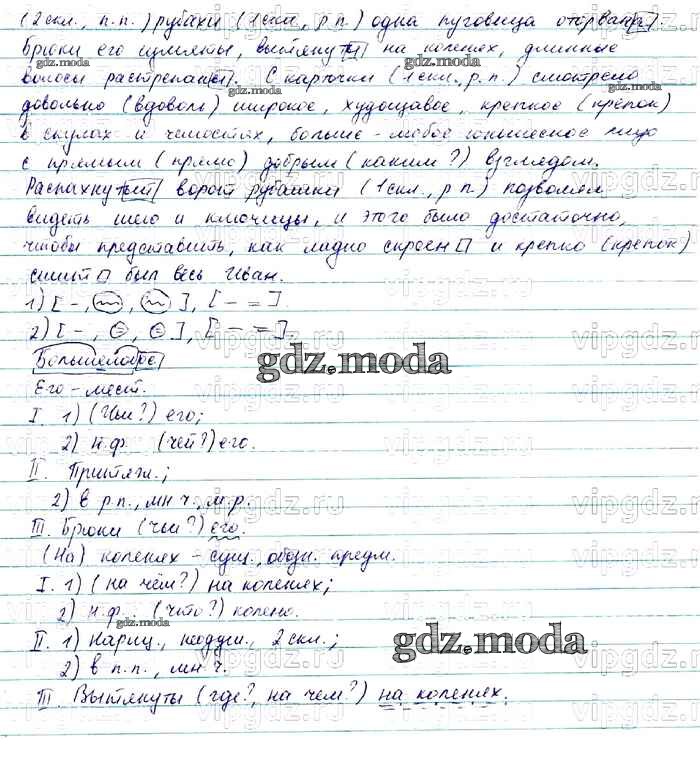 (2скл., п.п.) рубахи (1скл., р.п.) одна пуговица оторвана.
Брюки его измяты, вытянуты на коленях, длинные
волосы растрепаны. С карточки (1скл., р.п.) смотрело
довольно (вдоволь) широкое, худощавое, крепкое (крепок)
в скулах и челюстях, больше-лобое юношеское лицо
с прямым (прямо) добрым (каким?) взглядом.
Распахнутый ворот рубашки (1скл., р.п.) позволял
видеть шею и ключицы, и этого было достаточно,
чтобы представить, как ладно скроен и крепко (крепок)
сшит был весь Иван.
1) [ – , , ], [ – = ].
2) [ – , = , = ], [ – = ].
Большелобое
gdz.moda
Его – мест.
I. 1) (Чьи?) его;
2) н.ф. (чей?) его.
II. Притяж.;
2) в р.п., мн.ч., м.р.
III. Брюки (чьи?) его.
(На) коленях – сущ., обозн. предм.
I. 1) (на чём?) на коленях;
2) н.ф. (что?) колено.
II. 1) нариц., неодуш., 2 скл.;
2) в п.п., мн.ч.
gdz.moda
III. Вытянуты (где?, на чем?) на коленях.